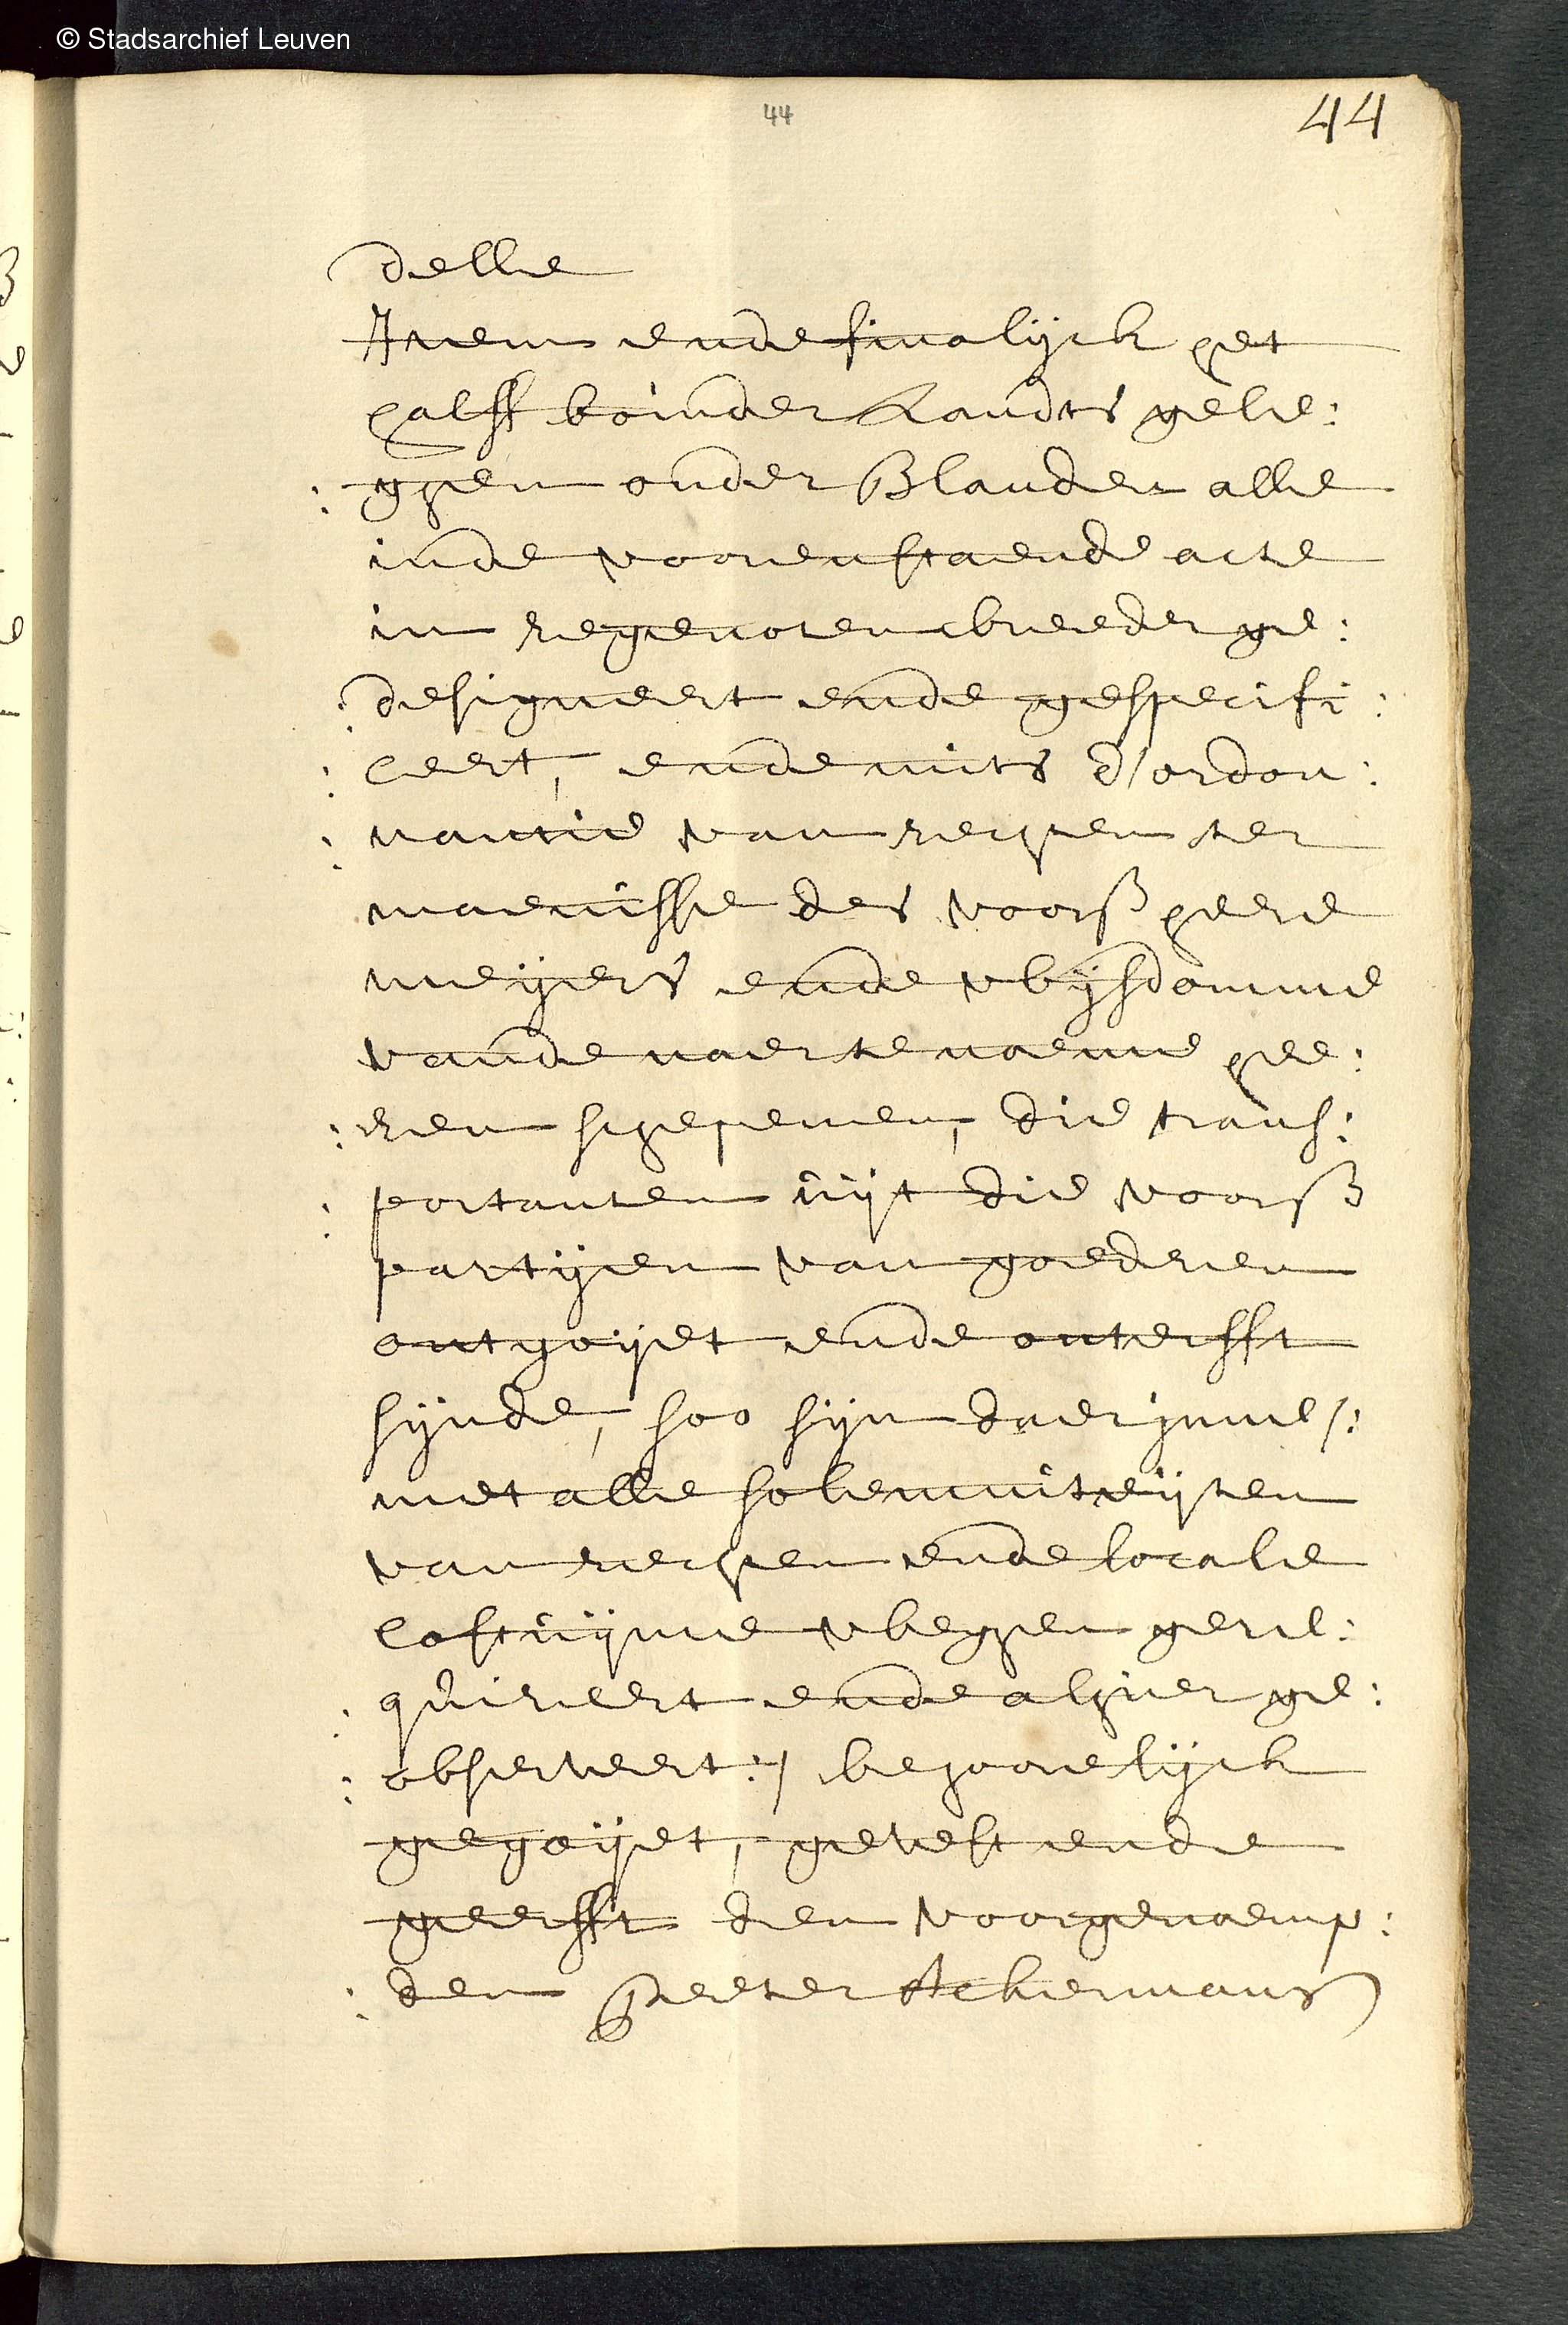 © Stadsarchief Leuven
44
44
delle
Item ende finalijck het
halff boinder Landts gele:
: ghen onder Blanden alle
inde voorenstaende acte
in regenoten breeder ge:
: designeert ende gespecifi:
: ceert, ende mits d'ordon:
: nantie van rechen ter
maenisse des voorß heere
meijers ende wijsdomme
vande naertenoeme hee:
: ren schepenen, die trans:
: portanten uijt die voorß
partijen van goederen
ontgoijet ende onterfft
sijnde, soo sijn daer inne /:
met alle solemniteijten
van rechen ende locale
costuijme weghen gere:
: quireert ende alhier ge:
: observeert :/ behoorelijck
gegoijet, gevest ende
geerfft den voorgenoemp:
: den Peeter Ackermans